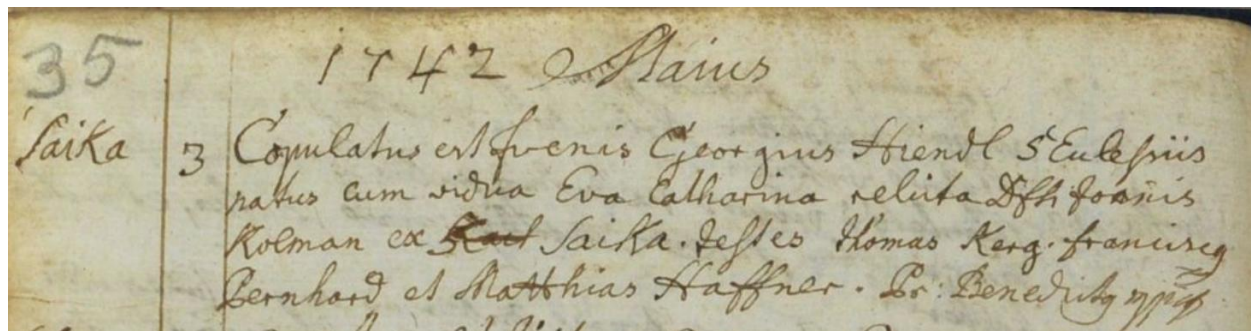 35
1742 Maius
Saika 3 Copulatus est Juvenis Georgius Hiendl
natus cum vidua Eva Catharina relicta Dfti Joañis
Kolman ex Saika. Testes Thomas Kerg. Franciscq
Bernhard et Matthias Haffner. Pr: Benedictq